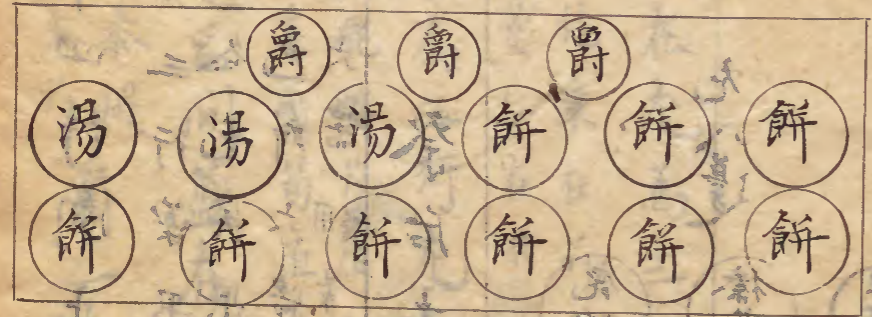 爵 爵 爵
湯 湯 湯 餅 餅 餅
餅 餅 餅 餅 餅 餅